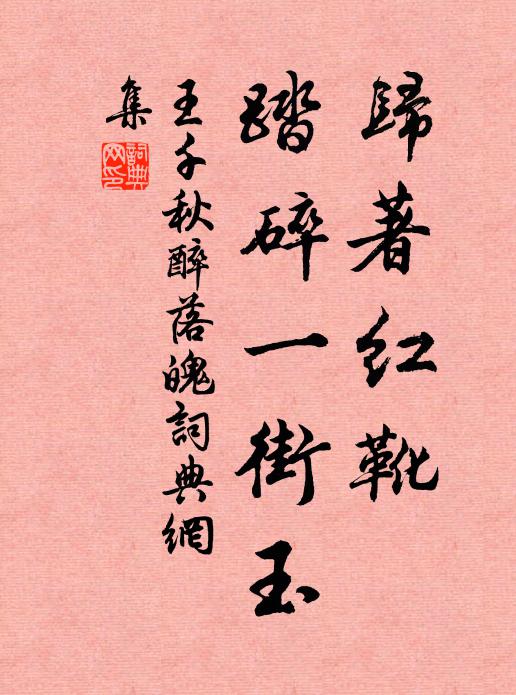 歸著紅靴
踏碎一街玉
王千秋醉落魄詞典網
集
詞典網印